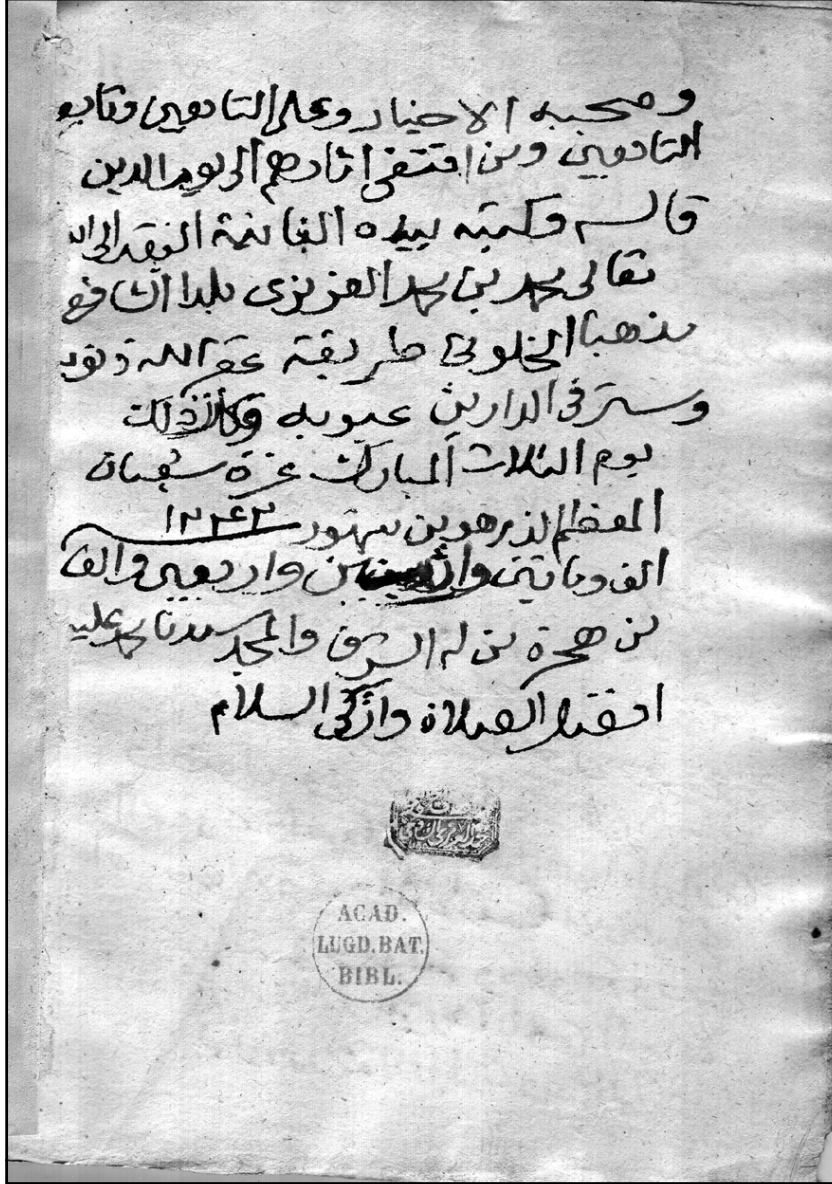 وصحبه الاخيار وعلى التابعين وتابع
التابعين ومن اقتفى اثارهم الى يوم الدين
قاله وكتبه بيده الفانية الفقير الى الله
تعالى محمد بن محمد العزيزى بلدا الشافعى
مذهبا الخلوتى طريقة غفر الله ذنوبه
وستر فى الدارين عيوبه وكان ذلك
يوم الثلاث المبارك غرة شعبان
المعظم الذى هو من شهور ١٢٤٢
الف وماتين واثنين واربعين والف
من هجرة من له الشرف والمجد سيدنا محمد عليه
افضل الصلاة وازكى السلام
ACAD.
LUGD.BAT.
BIBL.